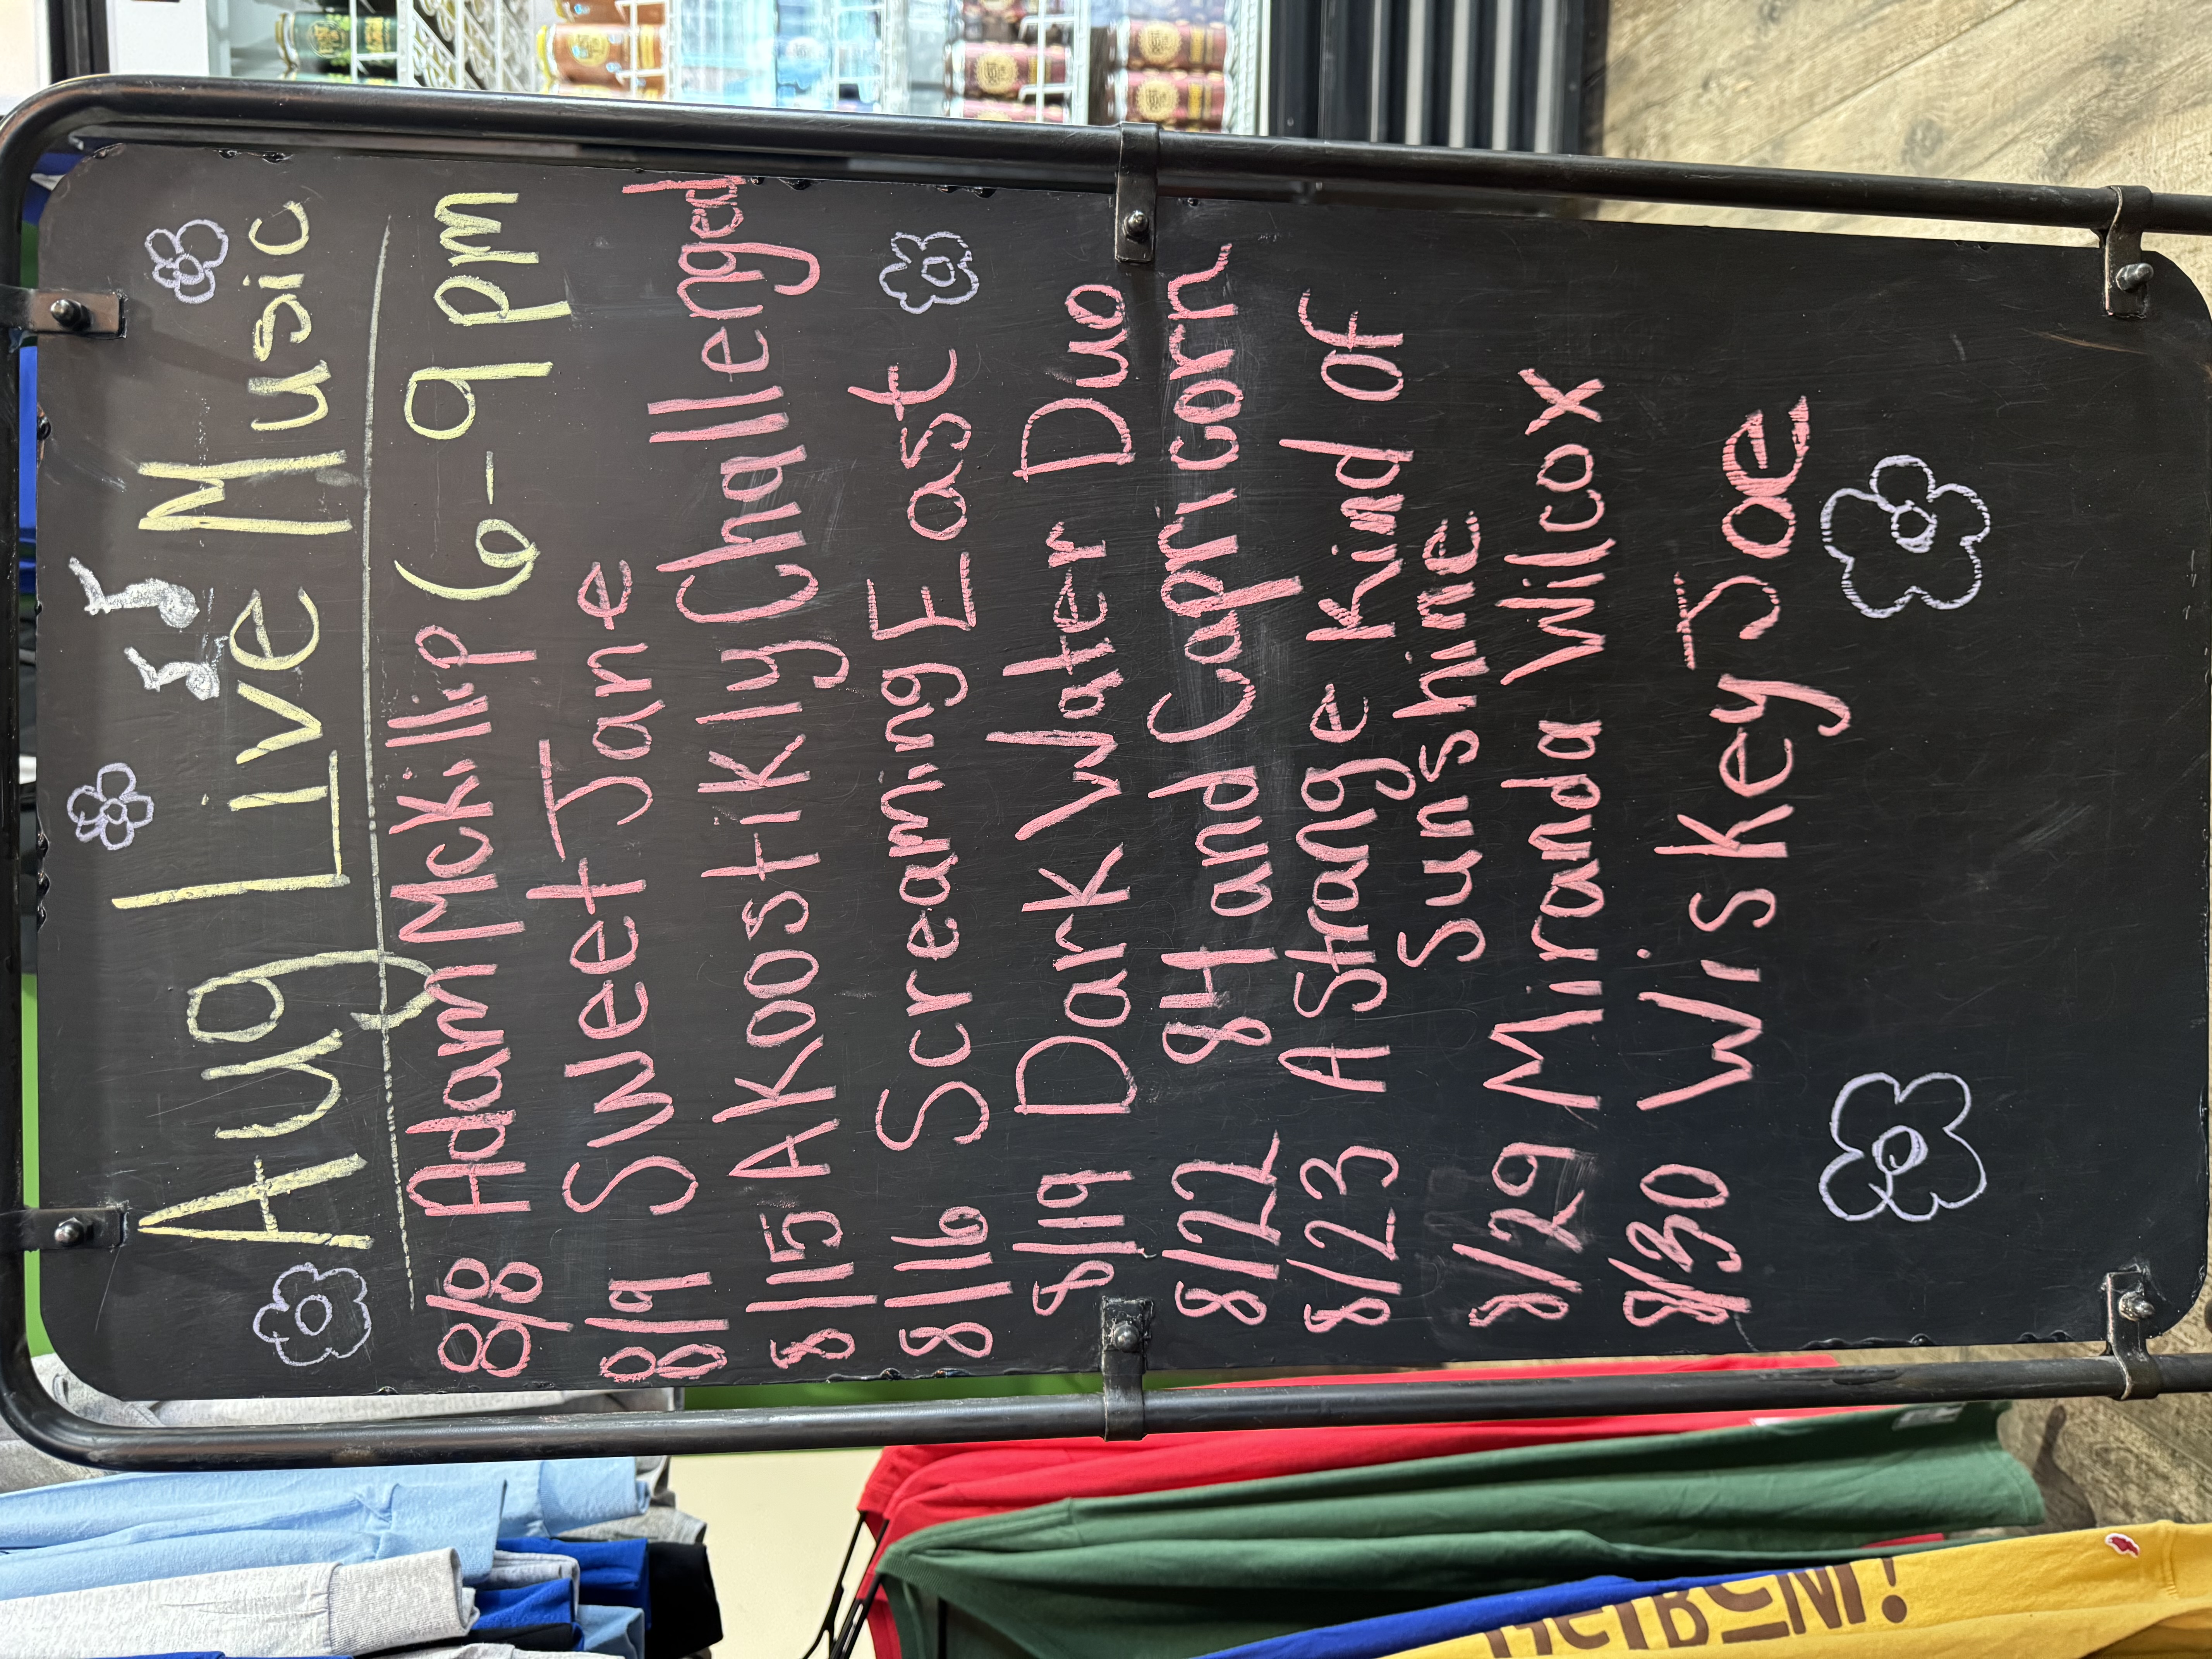 Aug Live Music
6-9 pm
8/8 Adam McKillip
8/9 Sweet Jane
8/15 Akoostikly Challenged
8/16 Screaming East
8/19 Dark Water Duo
8/22 84 and Capricorn
8/23 A Strange Kind of
Sunshine
8/29 Miranda Wilcox
8/30 Wiskey Joe